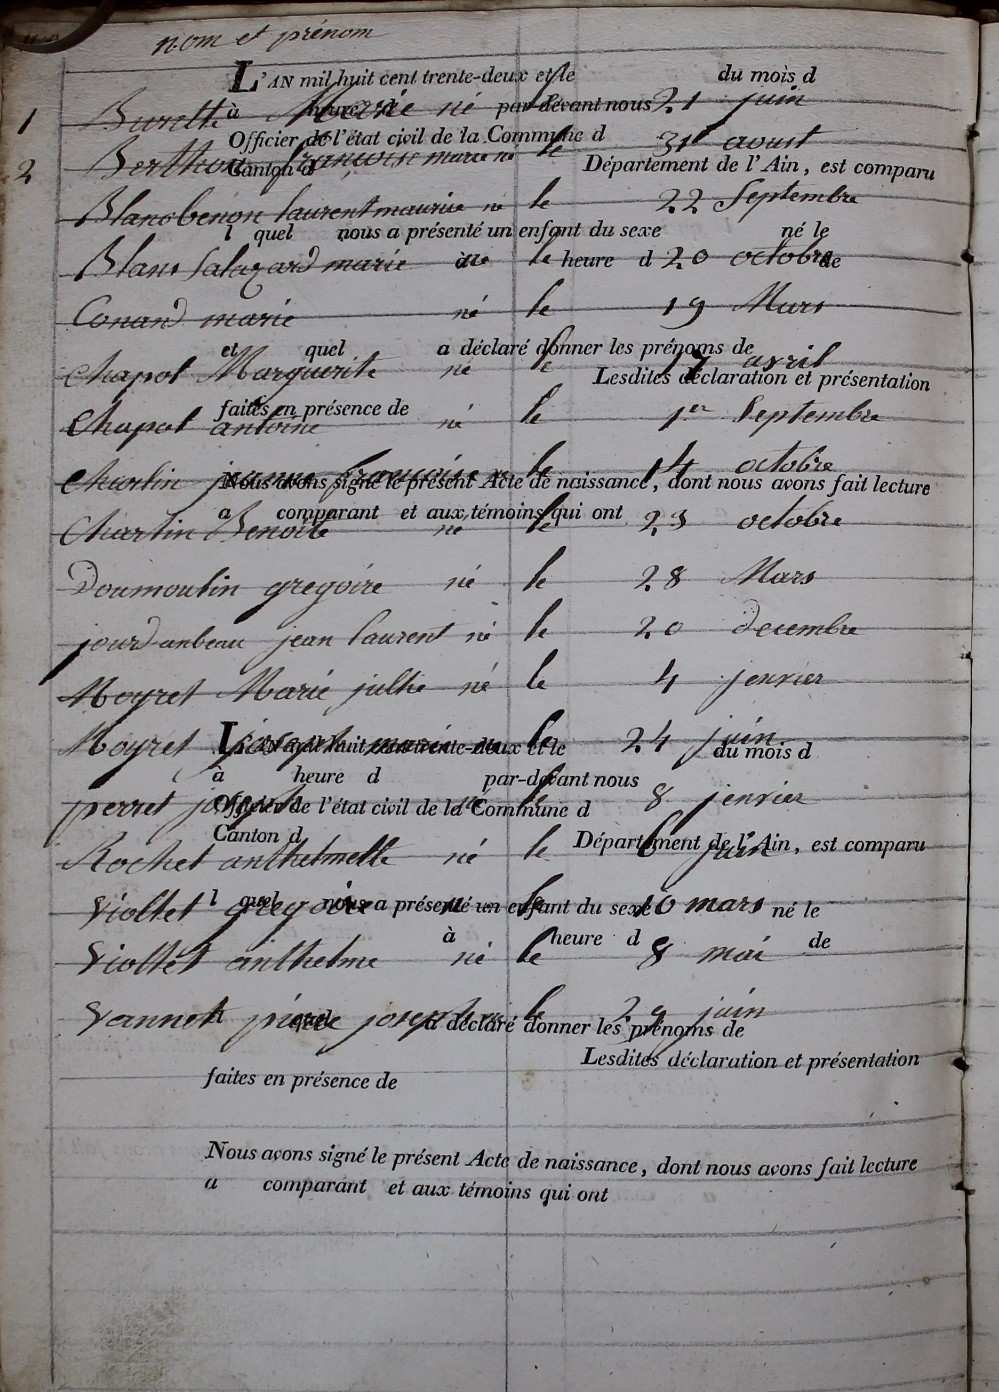 nom et prénom
L'AN mil huit cent trente-deux et le du mois d
à heure d par-devant nous
1 Burtte Marie né le 21 juin
Officier de l'état civil de la Commune d
2 Berthon françoise marie né le 31 aoust
Canton d Département de l'Ain, est comparu
Blancbenon laurent maurise né le 22 Septembre
l quel nous a présenté un enfant du sexe né le
à heure d de
Blanc Salazard marie né le 20 octobre
Conand marie né le 19 Mars
et quel a déclaré donner les prénoms de
Chapot Marguerite né le 17 avril
Lesdites déclaration et présentation
faites en présence de
Chapot antoine né le 1er Septembre
Charlin jeanne françoise né le 14 octobre
Nous avons signé le présent Acte de naissance, dont nous avons fait lecture
a comparant et aux témoins qui ont
Charlin Benoite né le 23 octobre
Doumoulin gregoire né le 28 Mars
jourdanbeau jean laurent né le 20 decembre
Moyret Marie julie né le 4 jenvier
Moyret joseph marie né le 24 juin
L'AN mil huit cent trente-deux et le du mois d
à heure d par-devant nous
perret joseph né le 8 jenvier
Officier de l'état civil de la Commune d
Canton d Département de l'Ain, est comparu
Rochet anthelmette né le 6 juin
l quel nous a présenté un enfant du sexe né le
Viollet gregoire né le 10 mars
à heure d de
Viollet anthelme né le 8 mai
Vannet pierre joseph né le 29 juin
et quel a déclaré donner les prénoms de
Lesdites déclaration et présentation
faites en présence de
Nous avons signé le présent Acte de naissance, dont nous avons fait lecture
a comparant et aux témoins qui ont